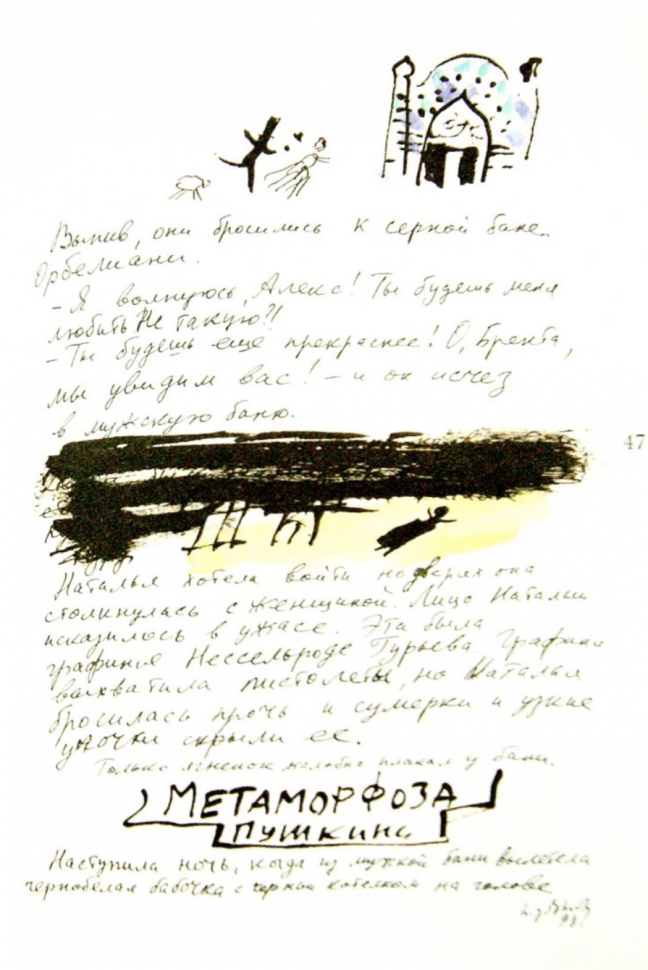 Выпив, они бросились к серной бане
Орбелиани.
– Я волнуюсь, Алекс! Ты будешь меня
любить Не такую?!
– Ты будешь еще прекраснее! О, Брента,
мы увидим вас! – и он исчез
в мужскую баню.
47
Наталья хотела войти но дверях она
столкнулась с женщиной. Лицо Натальи
исказилось в ужасе. Эта была
графиня Нессельроде Гурьева, графиня
выхватила пистолеты, но Наталья
бросилась прочь и сумерки и узкие
улочки скрыли ее.
Только ягненок жалобно плакал у бани.
МЕТАМОРФОЗА
ПУШКИНА
Наступила ночь, когда из мужской бани вылетела
чернобелая бабочка с черным котелком на голове